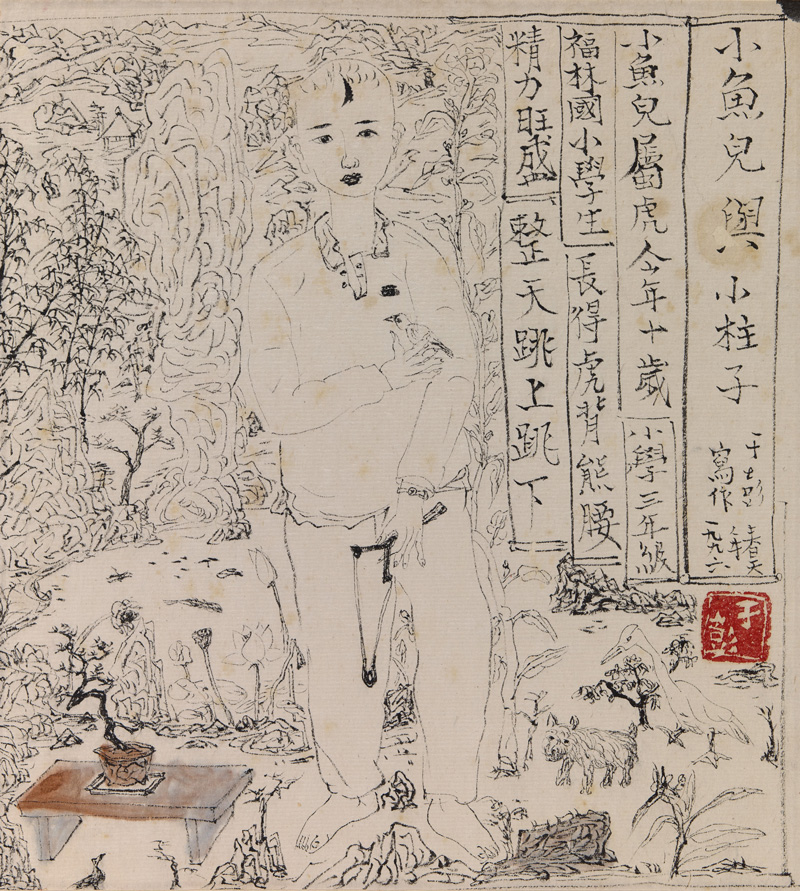 小魚兒與小柱子
于士彭
寫作
一九九六
小魚兒屬虎今年十歲小學三年級
福林國小學生長得虎背熊腰
精力旺盛整天跳上跳下
于彭